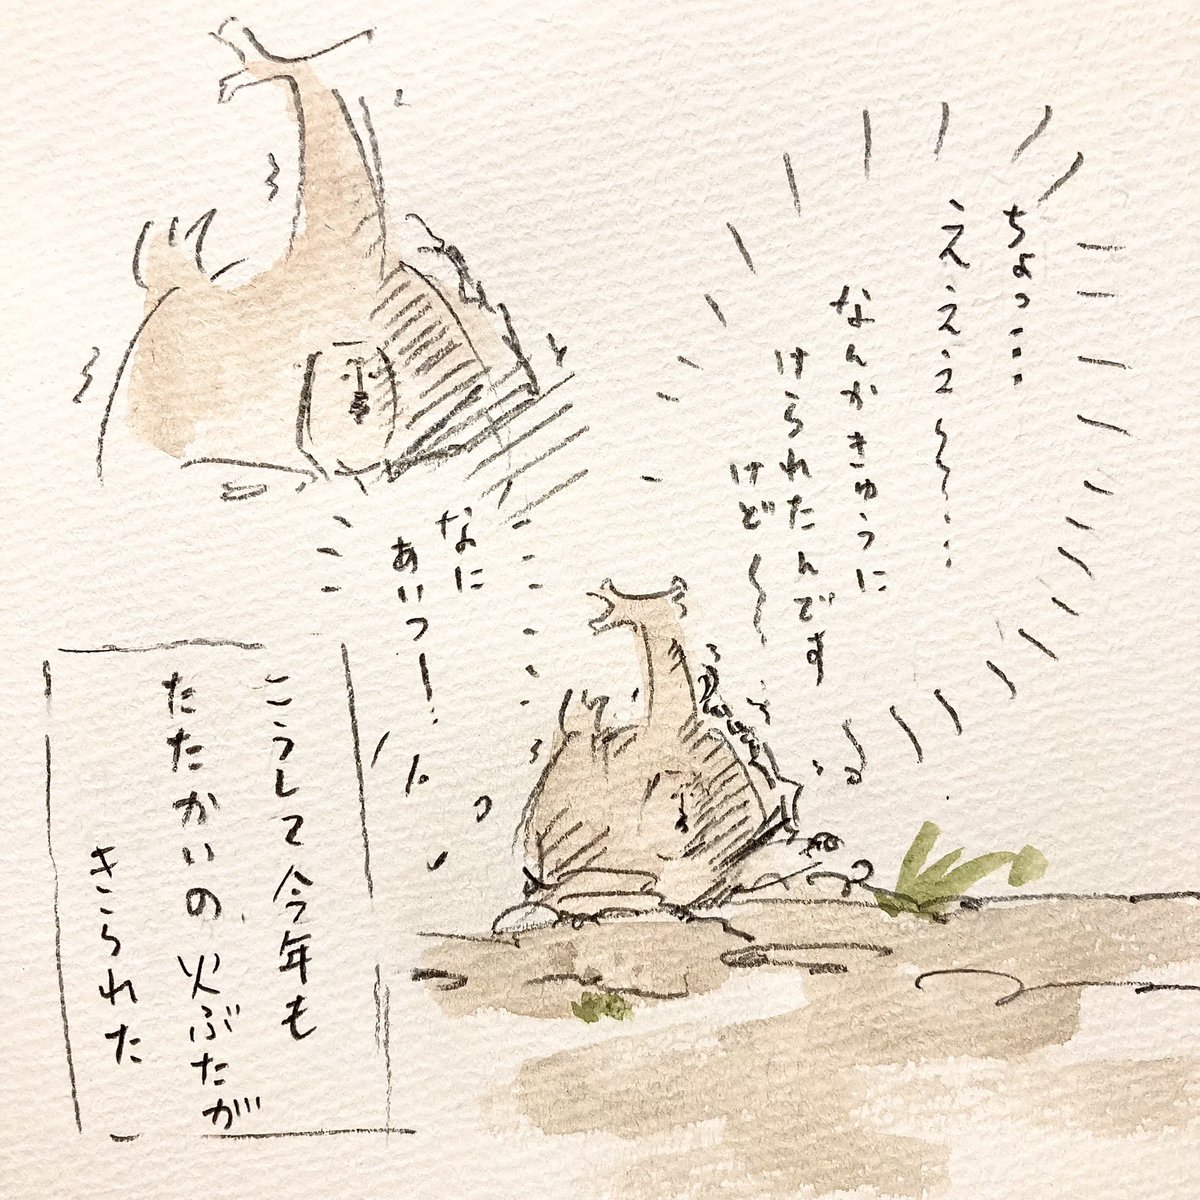 ちょっ...
えええ〜〜...
なんかきゅうに
けられたんです
けど〜〜
なに
あいつー!
こうして今年も
たたかいの火ぶたが
きられた